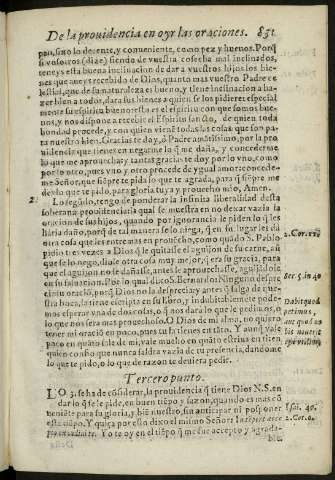 De la prouidencia en oyr las oraciones. 851
pan, sino lo decente, y conueniente, como pez y hueuos. Porq̃
si vosotros (dize) siendo de vuestra cosecha mal inclinados,
teneys esta buena inclinacion de dar a vuestros hijos los bie-
nes que aueys recebido de Dios, quanto mas vuestro Padre ce-
lestial, que de su naturaleza es bueno, y tiene inclinacion a ha-
zer bien a todos, dara sus bienes a quien se los pidiere: especial
mente su espiritu bueno: esta es el espiritu con que somos bue-
nos, y nos dispone a recebir el Espiritu santo, de quien toda
bondad procede, y con quien viene todas las cosas que son pa-
ra nuestro bien. Gracias te doy, ô Padre amãtissimo, por la pro
uidencia que tienes en negarme lo q̃ me daña, y concederme
lo que me aprouecha; y tantas gracias te doy por lo vno, como
por lo otro, pues vno y otro procede de ygual amor: concede-
me Señor, que siẽpre te pida lo que te agrada, para q̃ siẽpre me
des lo que te pido, para gloria tuya y prouecho mio, Amen.
2. Lo segũdo, tengo de ponderar la infinita liberalidad desta
soberana prouidencia: la qual se muestra en no dexar vazia la
oracion de sus hijos, quando por ignorancia le piden lo q̃ les
haria daño, porq̃ de tal manera se lo niega, q̃ en su lugar les dà
otra cosa que entre mas en prouecho, como quãdo S. Pablo
pidio tres vezes a Dios q̃ le quitasse el aguijon de su carne, aũ
que se lo nego, diole otra cosa muy mejor, q̃ era su gracia, para
que el aguijon no le dañasse, antes le aprouechasse, aguijãdole
en su saluacion. Por lo qual dixo S. Bernardo: Ninguno desprecie
su oracion, porq̃ Dios no la desprecia: y antes q̃ salga de nue-
stra boca, la tiene escripta en su libro, y indubitablemẽte pode-
mos esperar vna de dos cosas, q̃ o nos dara lo que le pedimos, o
lo que nos sera mas prouechoso. O Dios de mi alma, no quiero
tener mi oracion en poco, pues tu la tienes en tãto. Y aunq̃ vale
poco en quãto sale de mi, vale mucho en quãto estriua en ti: en
quien confio que nunca saldra vazia de tu presencia, dandome
o lo que te pido, o lo que de razon te deuiera pedir.
2. Cor. 12.
Ser. 5. in
Dabit quod
petimus,
aut quod no-
uerit
esse vtilius
Tercero punto.
LO 3. se ha de cõsiderar, la prouidencia q̃ tiene Dios N. S. en
dar lo q̃ se le pide, en buen tiẽpo y sazon, quando es mas cõ
ueniẽte para su gloria, y biẽ nuestro, sin anticipar ni posponer
este tiẽpo. Y quiça por esto dixo el mismo Señor:
Yo te oy en el tiẽpo q̃ me fue accepto y agrada-
ble,
2. Cor. 6.